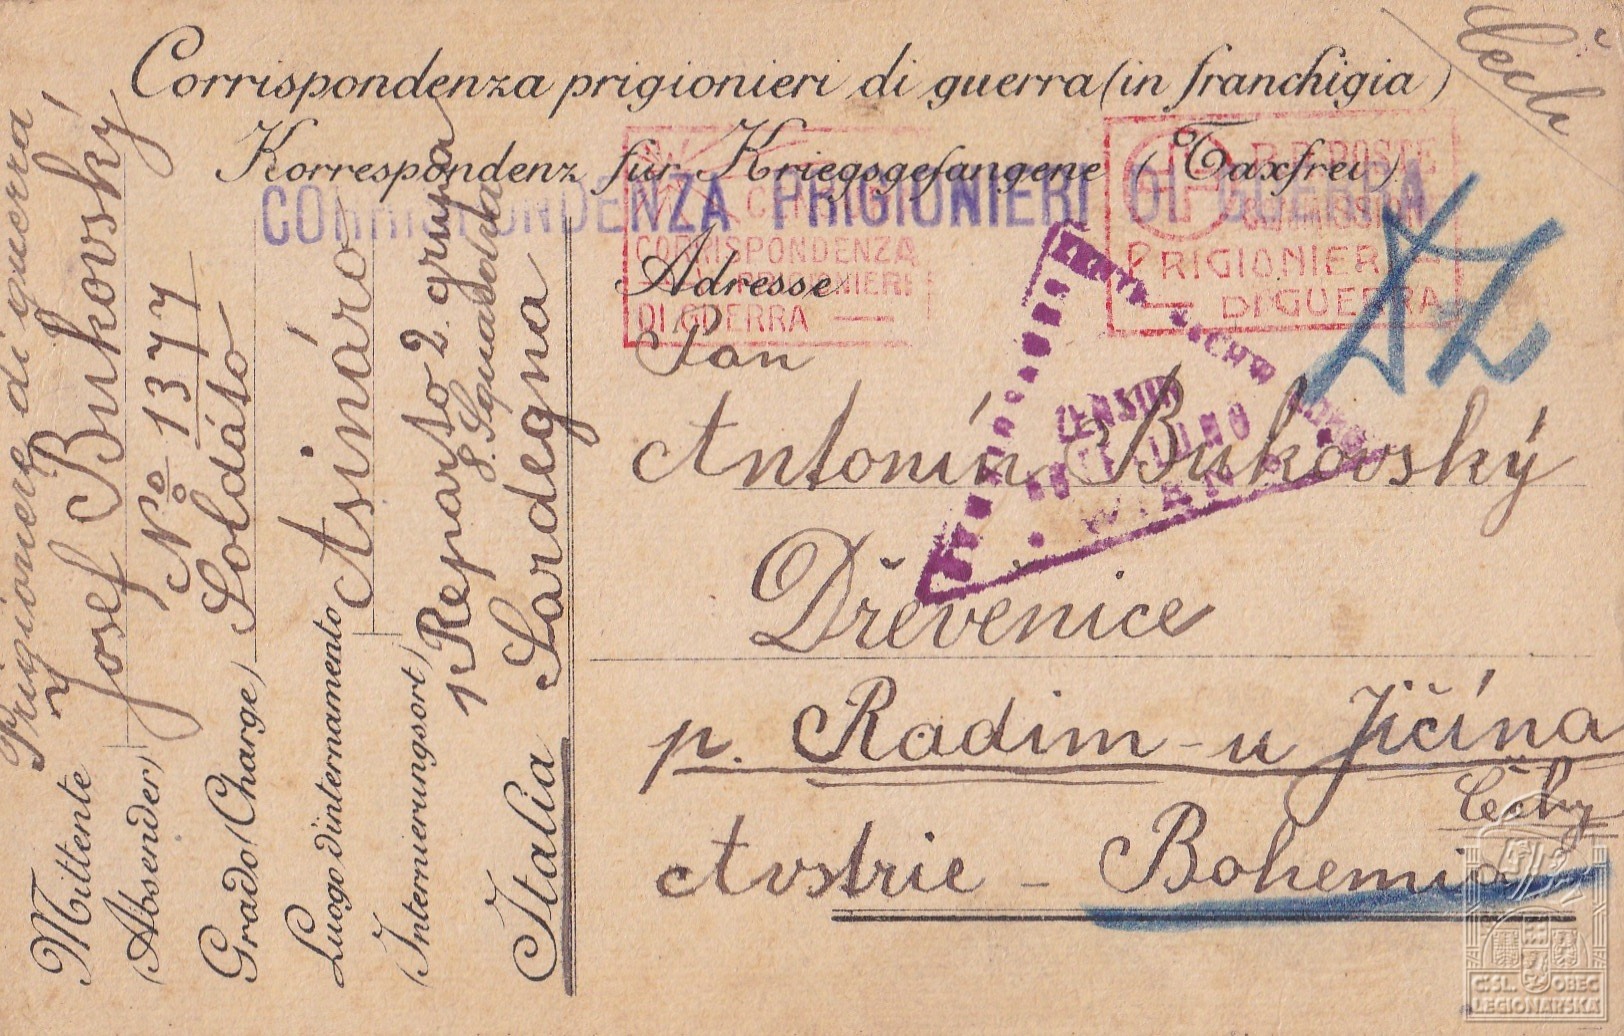 Corrispondenza prigionieri di guerra (in franchigia)
Korrespondenz für Kriegsgefangene (Taxfrei)
CORRISPONDENZA PRIGIONIERI DI GUERRA
CORRISPONDENZA
PRIGIONIERI
DI GUERRA
R.R. POSTE
COMMISSIONE
PRIGIONIERI
DI GUERRA
Adresse
Pan
Antonín Bukovský
Dřevěnice
p. Radim - u Jičína
Čechy
Avstrie - Bohemia
ZENSUR
WIEN
AZ
Prigioniere di guerra
Mittente
(Absender)
Josef Bukovský
No 1377
Grado (Charge) Soldáto
Luogo d'internamento
(Internierungsort)
Asináro
1 Reparto 2. grupa
S. Sguassoluta
Italia Sardegna
ČSL. OBEC
LEGIONÁŘSKÁ